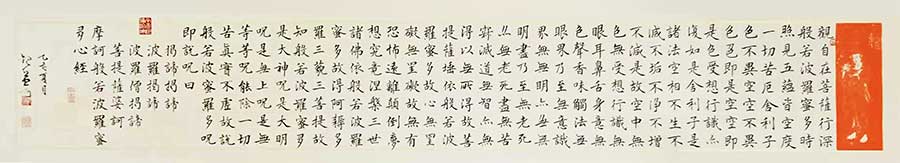 觀自在菩薩行深
般若波羅蜜多時
照見五蘊皆空度
一切苦厄舍利子
色不異空空不異
色色即是空空即
是色受想行識亦
復如是舍利子是
諸法空相不生不
滅不垢不淨不增
不減是故空中無
色無受想行識無
眼耳鼻舌身意無
色聲香味觸法無
眼界乃至無意識
界無無明亦無無
明盡乃至無老死
亦無老死盡無苦
集滅道無智亦無
得以無所得故菩
提薩埵依般若波
羅蜜多故心無罣
礙無罣礙故無有
恐怖遠離顛倒夢
想究竟涅槃三世
諸佛依般若波羅
蜜多故得阿耨多
羅三藐三菩提故
是大神呪是大明
呪是無上呪是無
等等呪能除一切
苦真實不虛故說
般若波羅蜜多呪
即說呪曰
揭諦揭諦
波羅揭諦
波羅僧揭諦
菩提薩婆訶
摩訶般若波羅蜜
多心經